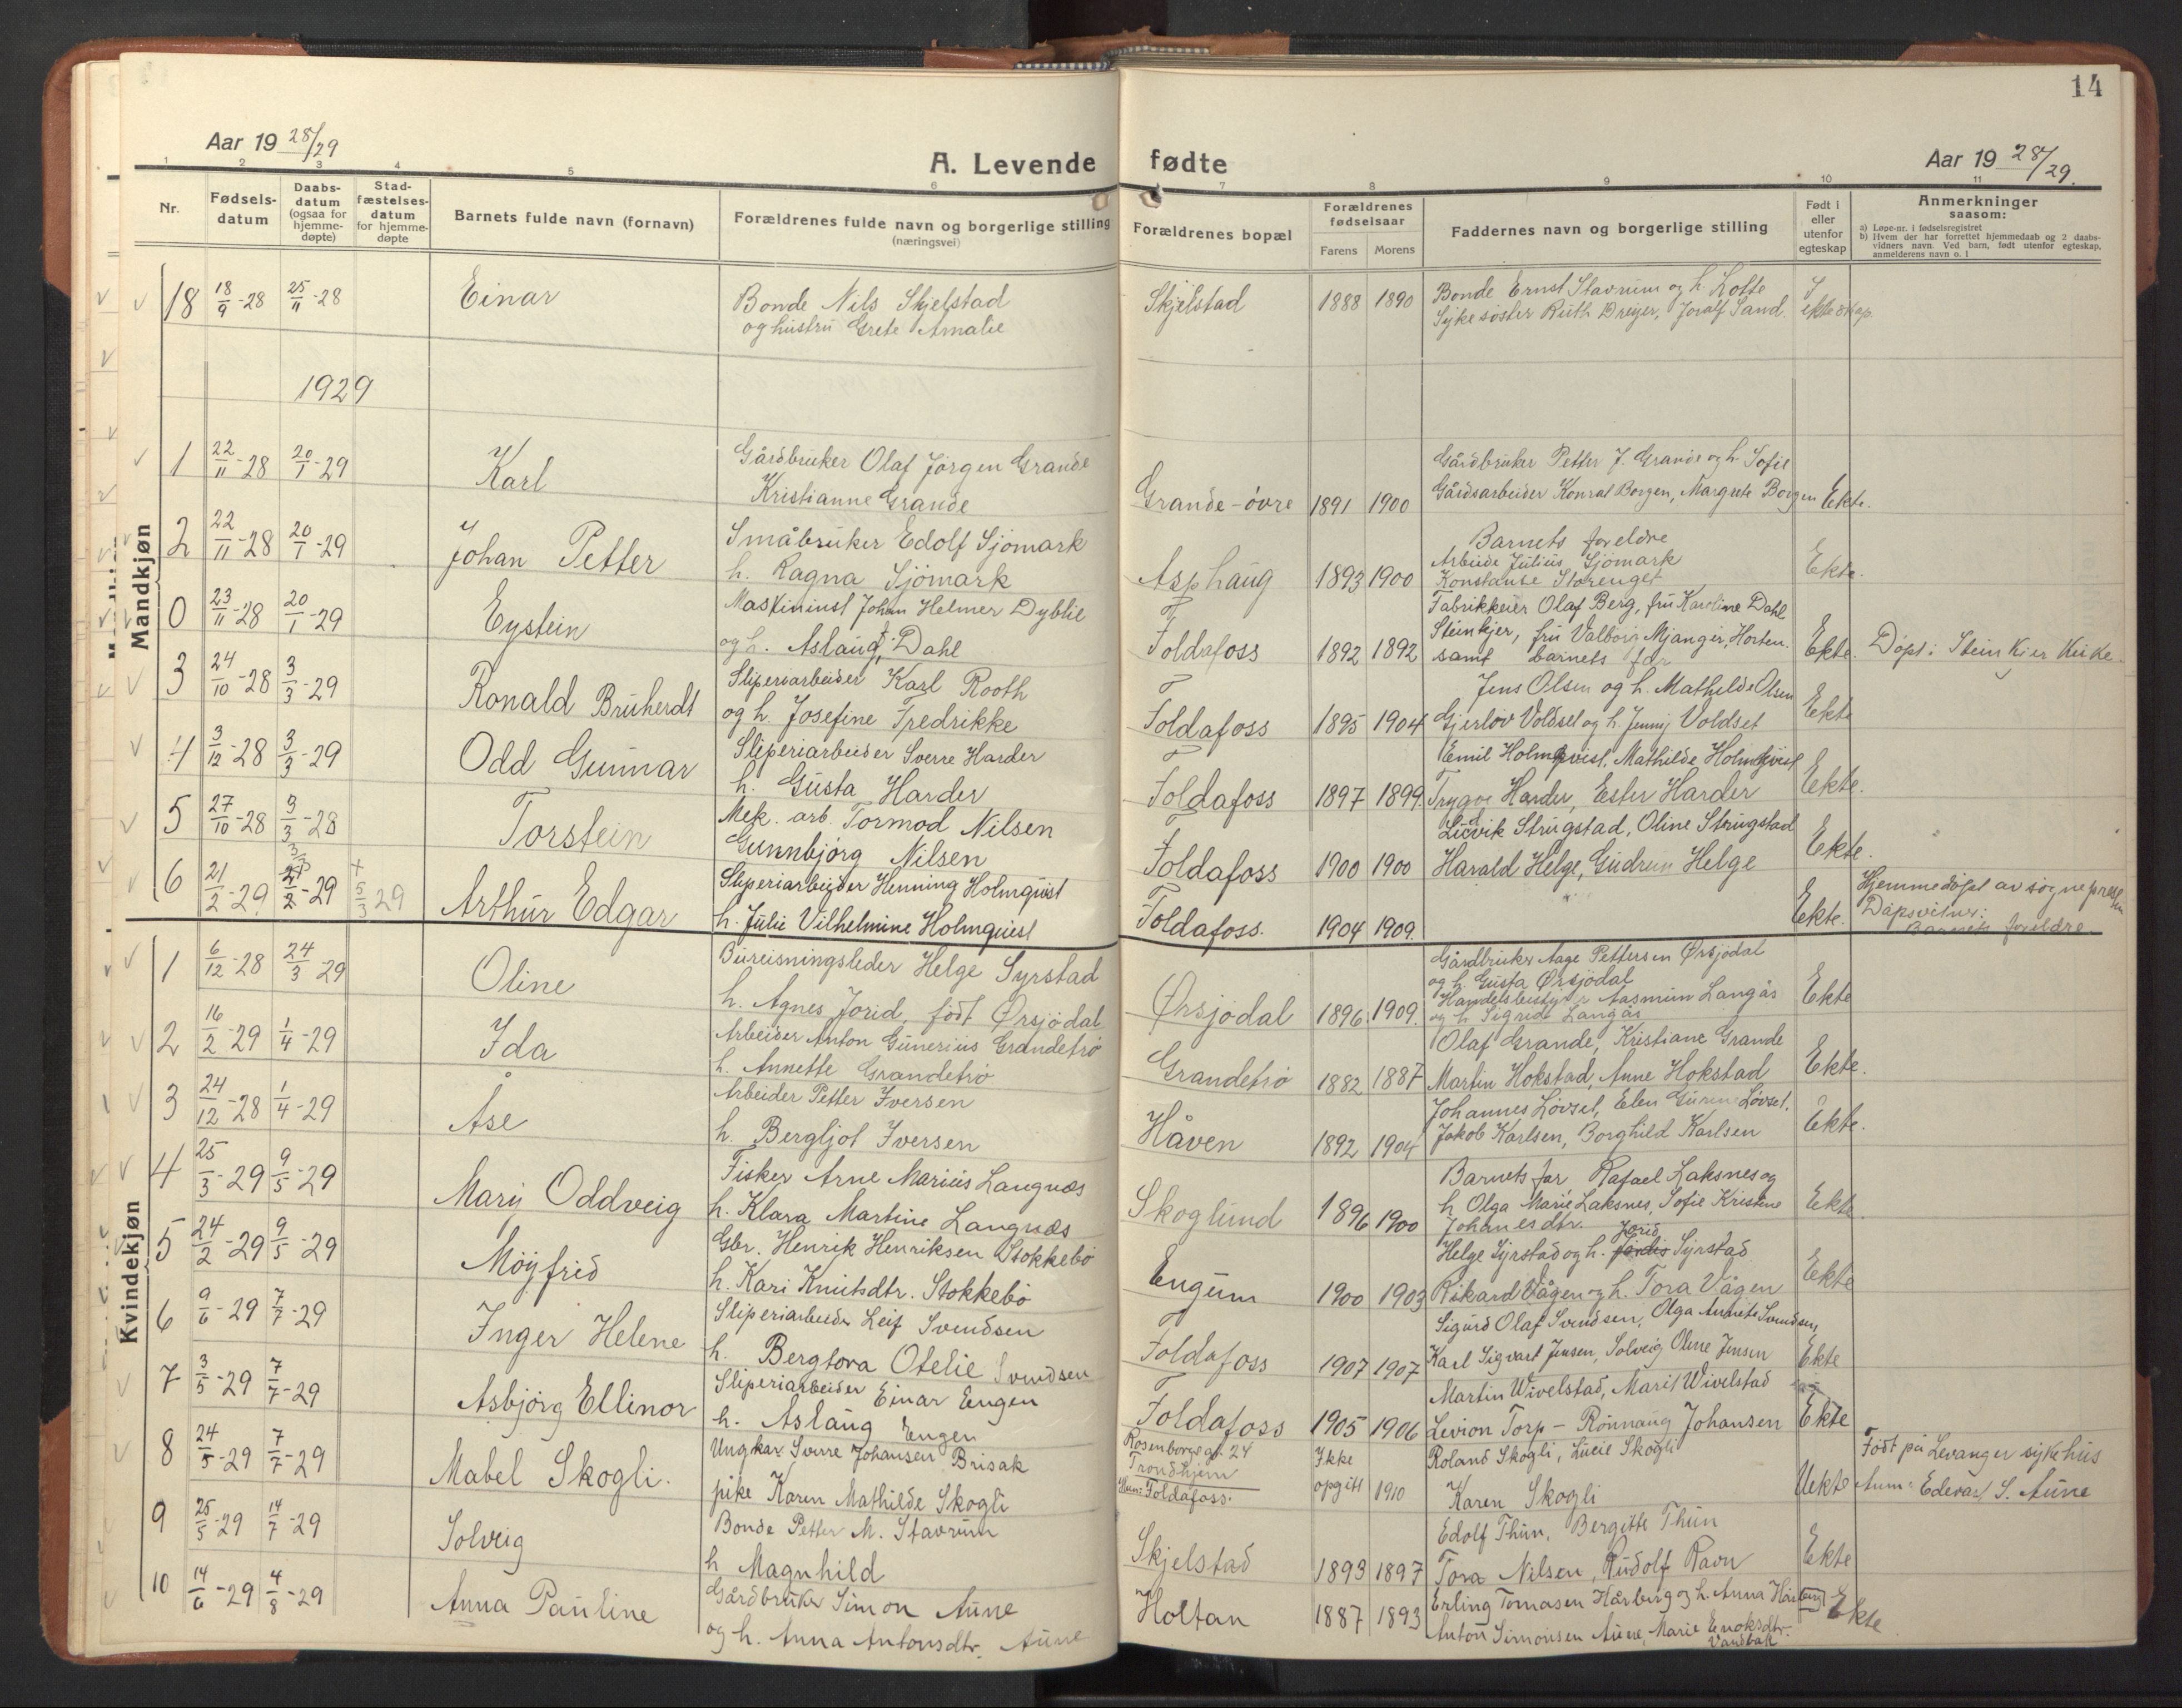 14
Aar 19 28/29
A. Levende fødte
Aar 19 28/29.
1 2 3 4 5 6 7 8 9 10 11
Nr.
Fødsels-
datum
Daabs-
datum
(ogsaa for
hjemme-
døpte)
Stad-
fæstelses-
datum
for hjemme-
døpte
Barnets fulde navn (fornavn)
Forældrenes fulde navn og borgerlige stilling
(næringsvei)
Forældrenes bopæl
Forældrenes
fødselsaar
Farens Morens
Faddernes navn og borgerlige stilling
Født i
eller
utenfor
egteskap
Anmerkninger
saasom:
a) Løpe-nr. i fødselsregistret
b) Hvem der har forrettet hjemmedaab og 2 daabs-
vidners navn. Ved barn, født utenfor egteskap,
anmelderens navn o. l
Mandkjøn
18 18/9-28 25/11-28 Einar
Bonde Nils Skjelstad
og hustru Grete Amalie
Skjelstad 1888 1890
Bonde Ernst Stavrum og h. Lotte
Sykesøster Ruth Dreyer, Joralf Sand.
I
ekteskap.
1929
1 22/11-28 20/1-29 Karl
Gårdbruker Olaf Jörgen Grande
Kristianne Grande
Grande-övre 1891 1900
Gårdbruker Petter J. Grande og h. Sofie
Gårdsarbeider Konrad Borgen, Margrete Borgen
Ekte.
2 22/11-28 20/1-29 Johan Petter
Småbruker Edolf Sjömark
h. Ragna Sjömark
Asphaug 1893 1900
Barnets foreldre
Arbeide Julius Sjömark
Konstanse Storenget
Ekte.
0 23/11-28 20/1-29 Eystein
Maskininst Johan Helmer Dyblie
og h. Aslaug, f. Dahl
Foldafoss 1892 1892
Fabrikkeier Olaf Berg, fru Karoline Dahl
Steinkjer, fru Valborg Mjanger, Horten.
samt barnets far
Ekte.
Döpt i Steinkjer Kirke.
3 24/10-28 3/3-29 Ronald Bruherdt
Sliperiarbeider Karl Rooth
og h. Josefine Fredrikke
Foldafoss 1895 1904
Jens Olsen og h. Mathilde Olsen
Gjerlöv Voldset og h. Jenny Voldset
Ekte
4 3/12-28 3/3-29 Odd Gunnar
Sliperiarbeider Sverre Harder
h. Gusta Harder
Foldafoss 1897 1899.
Emil Holmqvist, Mathilde Holmqvist
Trygve Harder, Ester Harder
Ekte.
5 27/10-28 3/3-28 Torstein
Mek. arb. Tormod Nilsen
Gunnbjörg Nilsen
Foldafoss 1900 1900
Ludvik Strugstad, Oline Strugstad
Harald Helge, Gudrun Helge
Ekte.
6 21/2-29 2/2-29 + 5/3 29 Arthur Edgar
Sliperiarbeider Henning Holmquist
h. Julie Vilhelmine Holmquist
Foldafoss. 1904 1909.
Ekte.
Hjemmedöpt av sognepresten
Dåpsvitner:
Barnets foreldre.
Kvindekjøn
1 6/12-28 24/3-29 Oline
Bureisningsleder Helge Syrstad
h. Agnes Jorid, född Ørsjödal
Ørsjödal 1896. 1909.
Gårdbruker Aage Pettersen Ørsjödal
og h. Gusta Ørsjödal
Handelsbestyrer Aasmun Langås
og h Sigrid Langås
Ekte
2 16/2-29 1/4-29 Ida
Arbeider Anton Gunerius Grandetrö
h. Annette Grandetrö
Grandetrö 1882 1887
Olaf Grande, Kristiane Grande
Martin Hokstad, Anne Hokstad
Ekte.
3 24/12-28 1/4-29 Åse
Arbeider Petter Iversen
h. Bergljot Iversen
Håven 1892 1904
Johannes Lövset, Elen Gurine Lövset.
Jakob Karlsen, Borghild Karlsen
Ekte.
4 25/3-29 9/5-29 Mary Oddveig
Fisker Arne Marius Langnæs
h. Klara Martine Langnæs
Skoglund 1896 1900
Barnets far Rafael Laksnes og
h Olga Marie Laksnes, Sofie Kristine
Johanesdtr.
Ekte.
5 24/2-29 9/5-29 Möyfrid
Gbr. Henrik Henriksen Stokkebö
h. Kari Knutsdtr. Stokkebö
Engum 1900 1903
Jorid
Helge Syrstad og h. Syrstad
Rikard Vågen og h. Tora Vågen
Ekte
6 9/6-29 7/7-29 Inger Helene
Sliperiarbeider Leif Svendsen
h. Bergtora Otelie Svendsen
Foldafoss 1907 1907
Sigurd Olaf Svendsen, Olga Annete Svendsen,
Karl Sigvart Jensen, Solveig Oline Jensen
Ekte
7 3/5-29 7/7-29 Asbjörg Ellinor
Sliperiarbeider Einar Engen
h. Aslaug Engen
Foldafoss 1905 1906
Martin Wivelstad, Marit Wivelstad
Levion Torp - Rönnaug Johansen
Ekte
8 24/5-29 7/7-29 Mabel Skogli.
Ungkar Sverre Johansen Brisak
pike Karen Mathilde Skogli
Rosenborgs gt. 24
Trondhjem
Hun: Foldafoss.
Ikke
opgitt 1910
Roland Skogli, Lucie Skogli
Karen Skogli
Uekte
Født på Levanger sykehus
Anm: Edevart S. Aune
9 25/5-29 14/7-29 Solveig
Bonde Petter M. Stavrum
h Magnhild
Skjelstad 1893 1897
Edolf Thun, Bergitte Thun
Tora Nilsen, Rudolf Ravn
Ekte
10 14/6-29 4/8-29 Anna Pauline
Gårdbruker Simon Aune
og h. Anna Antonsdtr. Aune
Holtan 1887 1893
Erling Tomasen Hårberg og h. Anna Hårberg
Anton Simonsen Aune, Marie Enoksdtr.
Vandbak
Ekte